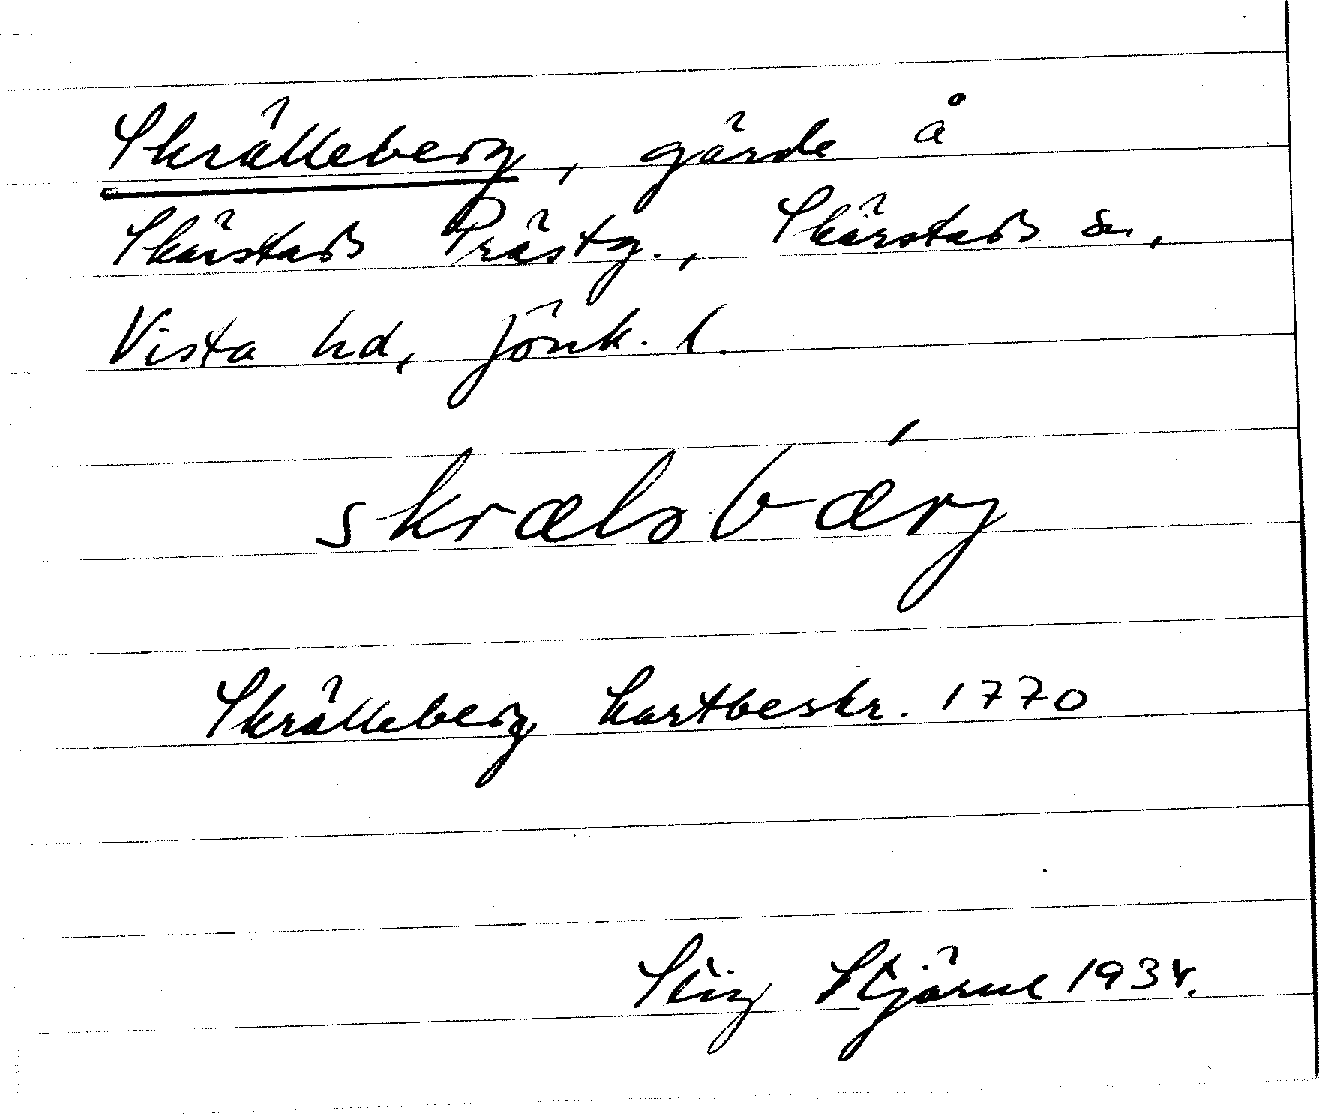 Skrälleberg, gärde å
Skärstads Prästg., Skärstads sn,
Vista hd, Jönk. l.
skrælsbærj
Skrälleberg kartbeskr. 1770
Stig Stjärne 1934.